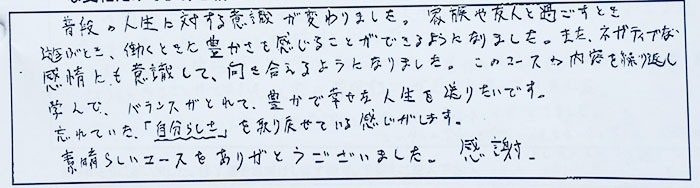 普段の人生に対する意識が変わりました。家族や友人と過ごすとき
遊ぶとき、働くときに豊かさを感じることができるようになりました。また、ネガティブな
感情にも意識して、向き合えるようになりました。このコースの内容を繰り返し
学んで、バランスがとれて、豊かで幸せな人生を送りたいです。
忘れていた「自分らしさ」を取り戻せている感じがします。
素晴らしいコースをありがとうございました。感謝.